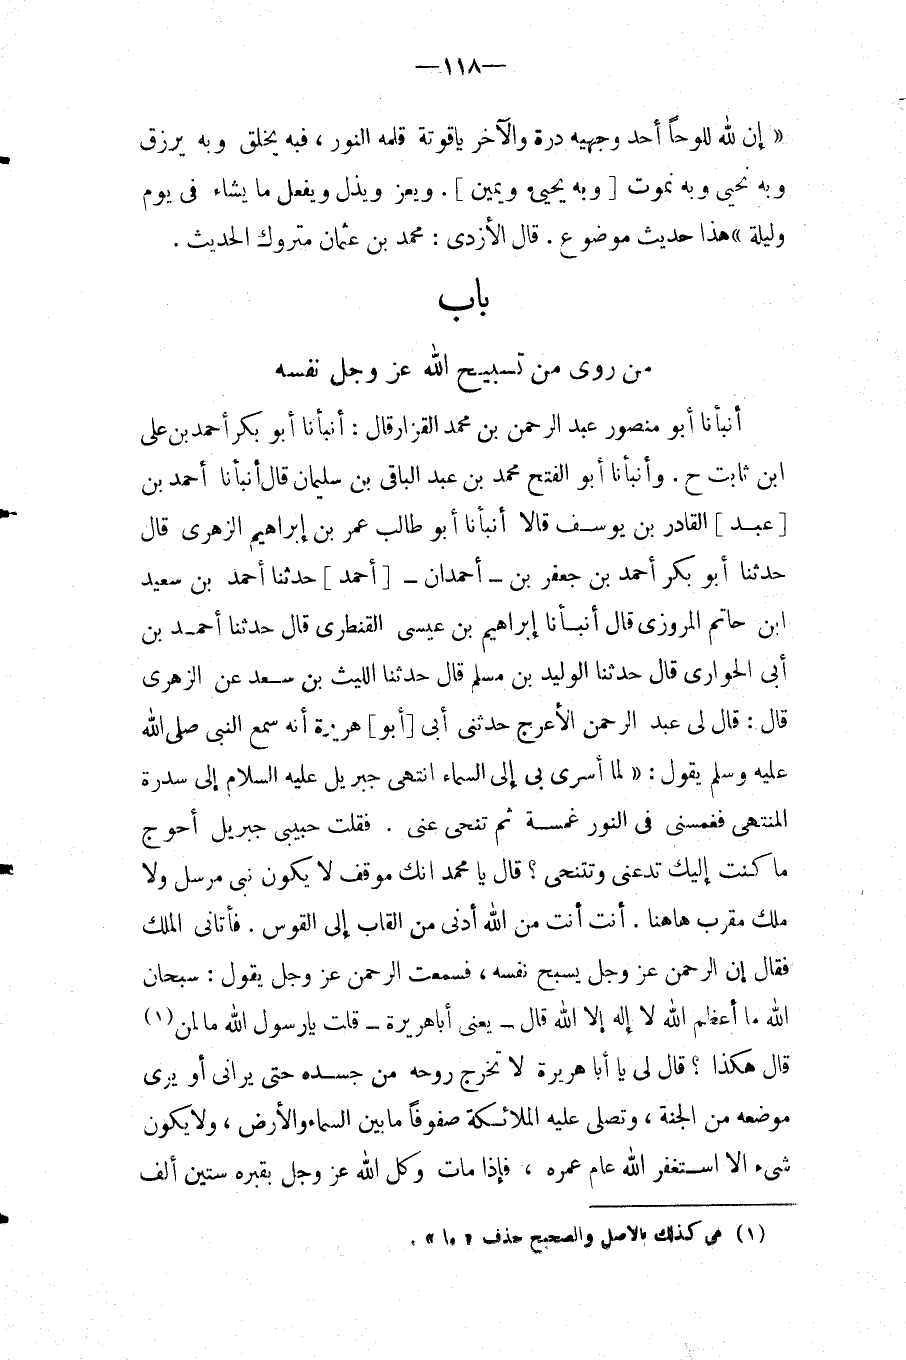 —١١٨—
« إن لله للوحاً أحد وجهيه درة والآخر ياقوتة قلمه النور ، فبه يخلق وبه يرزق
وبه نحيى وبه نموت [ وبه يحيىء ويمين ] . ويعز ويذل ويفعل ما يشاء فى يوم
وليلة »هذا حديث موضوع . قال الأزدى : محمد بن عثمان متروك الحديث .
باب
من روى من تسبيح الله عز وجل نفسه
أنبأنا أبو منصور عبد الرحمن بن محمد القزاز قال : أنبأنا أبو بكر أحمد بن على
ابن ثابت ح . وأنبأنا أبو الفتح محمد بن عبد الباقى بن سليمان قال أنبأنا أحمد بن
[ عبد ] القادر بن يوسف قالا أنبأنا أبو طالب عمر بن إبراهيم الزهرى قال
حدثنا أبو بكر أحمد بن جعفر بن ـ أحمدان ـ [ أحمد ] حدثنا أحمد بن سعيد
ابن حاتم المروزى قال أنبأنا إبراهيم بن عيسى القنطرى قال حدثنا أحمد بن
أبى الحوارى قال حدثنا الوليد بن مسلم قال حدثنا الليث بن سعد عن الزهرى
قال : قال لى عبد الرحمن الأعرج حدثنى أبى [أبو] هريرة أنه سمع النبى صلى الله
عليه وسلم يقول : « لما أسرى بى إلى السماء انتهى جبريل عليه السلام إلى سدرة
المنتهى فغمسنى فى النور غمسة ثم تنحى عنى . فقلت حبيبى جبريل أحوج
ما كنت إليك تدعنى وتتنحى ؟ قال يا محمد انك موقف لا يكون نبى مرسل ولا
ملك مقرب هاهنا . أنت أنت من الله أدنى من القاب إلى القوس . فأتانى الملك
فقال إن الرحمن عز وجل يسبح نفسه ، فسمعت الرحمن عز وجل يقول : سبحان
الله ما أعظم الله لا إله إلا الله قال ـ يعنى أبا هريرة ـ قلت يارسول الله ما لمن(١)
قال هكذا ؟ قال لى يا أبا هريرة لا تخرج روحه من جسده حتى يرانى أو يرى
موضعه من الجنة ، وتصلى عليه الملائكة صفوفاً مابين السماء والأرض ، ولا يكون
شىء الا استغفر الله عام عمره ، فإذا مات وكل الله عز وجل بقبره ستين ألف
(١) هى كذلك بالاصل والصحيح حذف « ما » .